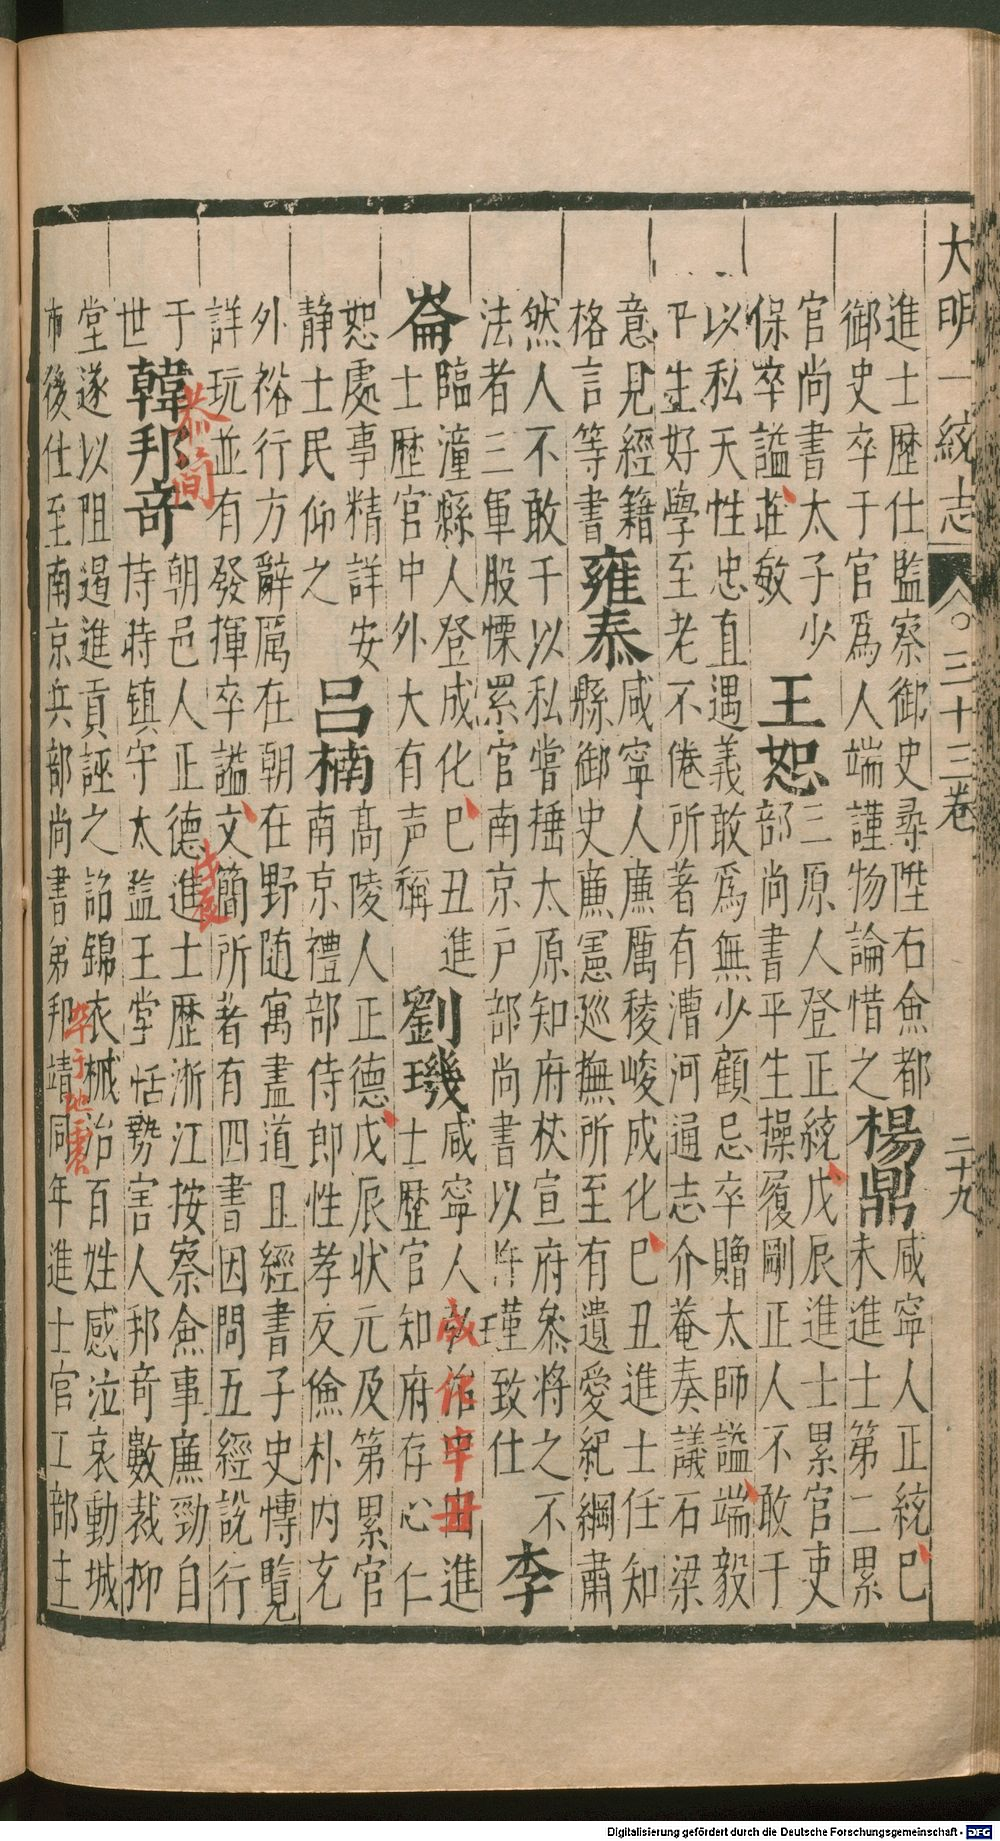 大明一統志 三十三卷 二十九
進士歷仕監察御史尋陞右僉都
御史卒于官爲人端謹物論惜之
楊鼎
咸寧人正統己
未進士第二累
官尚書太子少
保卒謚莊敏
王恕
三原人登正統戊辰進士累官吏
部尚書平生操履剛正人不敢干
以私天性忠直遇義敢爲無少顧忌卒贈太師謚端毅
平生好學至老不倦所著有漕河通志介菴奏議石梁
意見經籍
格言等書
雍泰
咸寧人廉厲稜峻成化己丑進士任知
縣御史廉憲巡撫所至有遺愛紀綱肅
然人不敢干以私嘗捶太原知府杖宣府叅將之不
法者三軍股慄累官南京戶部尚書以忤瑾致仕
李
崙
臨潼縣人登成化己丑進
士歷官中外大有声稱
劉璣
咸寧人
成化辛丑
進
士歷官知府存心仁
恕處事精詳安
靜士民仰之
呂楠
高陵人正德戊辰狀元及第累官
南京禮部侍郎性孝友儉朴內充
外裕行方辭厲在朝在野隨寓盡道且經書子史慱覽
詳玩並有發揮卒謚文簡所著有四書因問五經說行
于
世
韓邦竒
恭簡
朝邑人正德進士歷浙江按察僉事廉勁自
戊辰
恃時鎮守太監王堂恬勢害人邦竒數裁抑
堂遂以阻遏進貢誣之詔錦衣械治百姓感泣哀動城
市後仕至南京兵部尚書弟邦靖同年進士官工部主
卒于地震
Digitalisierung gefördert durch die Deutsche Forschungsgemeinschaft - DFG